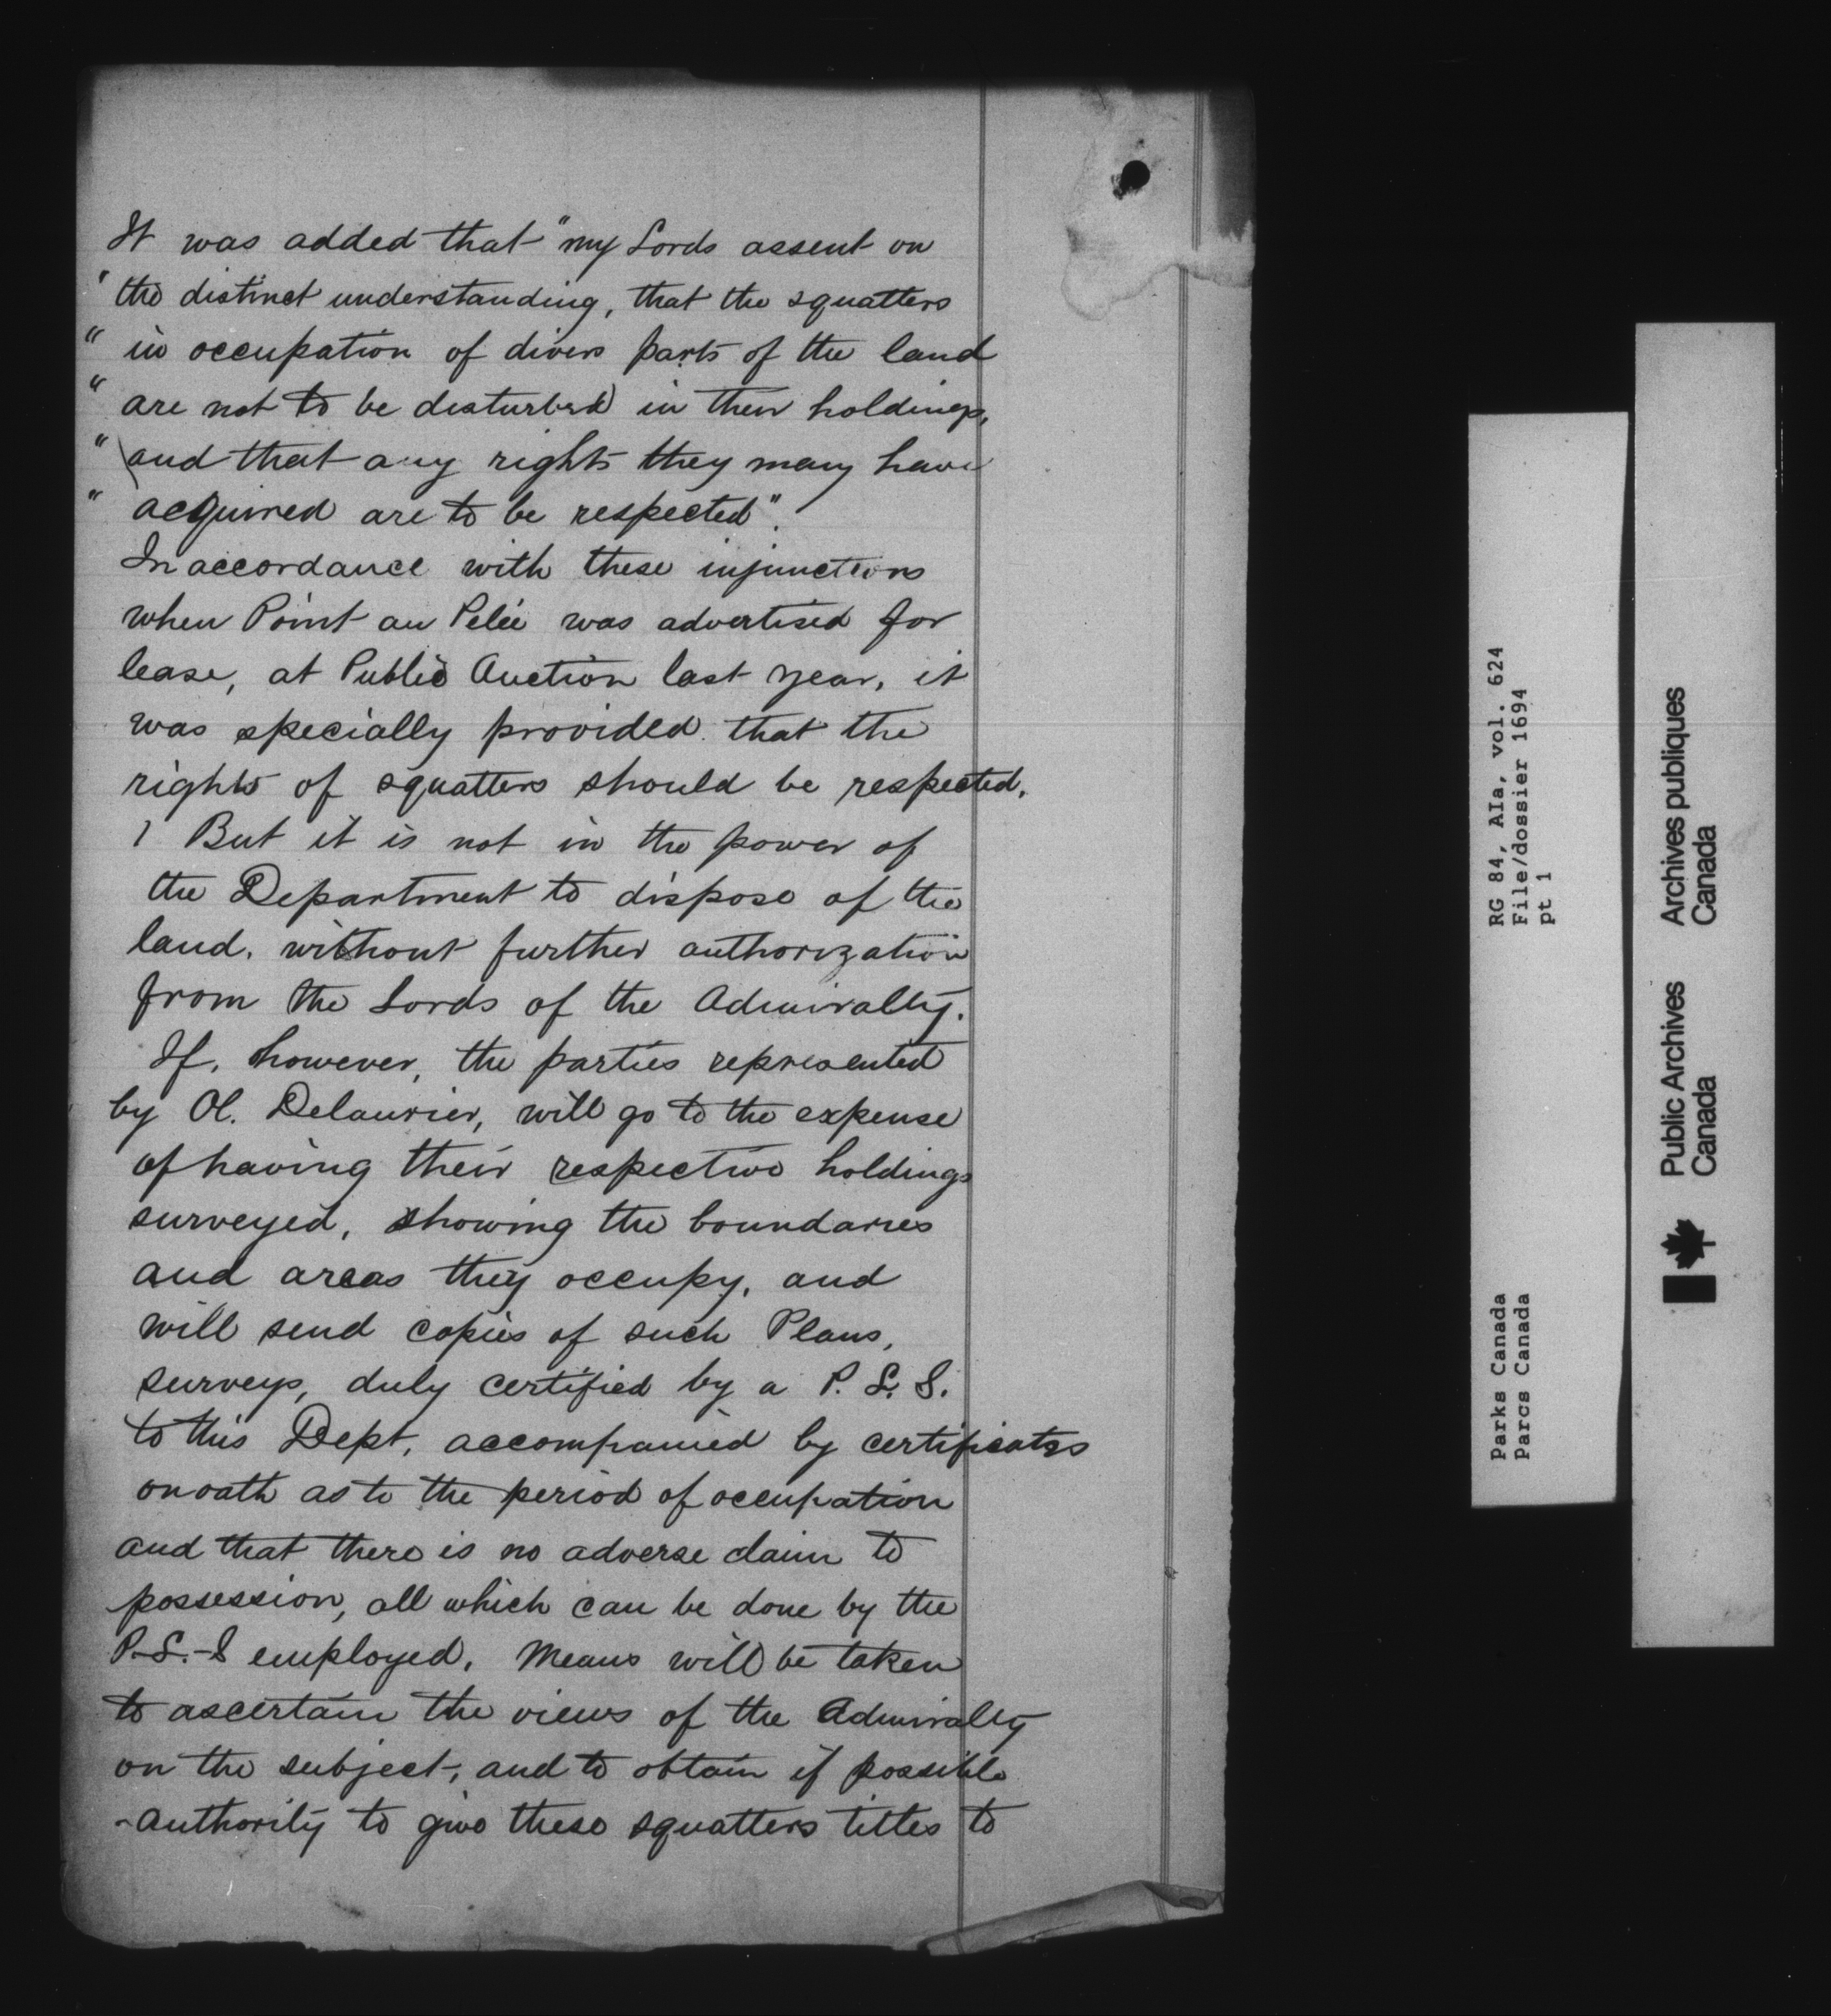 It was added that "my Lords assent on
" the distinct understanding, that the squatters
" in occupation of divers parts of the land
" are not to be disturbed in their holdings,
" and that any rights they may have
" acquired are to be respected".
In accordance with these injunctions
when Point au Pelée was advertised for
lease, at Public Auction last year, it
was specially provided that the
rights of squatters should be respected.
But it is not in the power of
the Department to dispose of the
land, without further authorization
from the Lords of the Admiralty.
If, however, the parties represented
by Ol. Delaurier, will go to the expense
of having their respective holdings
surveyed, showing the boundaries
and areas they occupy, and
will send copies of such Plans,
surveys, duly certified by a P. L. S.
to this Dept, accompanied by certificates
on oath as to the period of occupation
and that there is no adverse claim to
possession, all which can be done by the
P.L.S employed. Means will be taken
to ascertain the views of the Admiralty
on the subject, and to obtain if possible
authority to give these squatters titles to
Parks Canada
Parcs Canada
RG 84, AIa, vol. 624
File/dossier 1694
pt 1
Public Archives
Canada
Archives publiques
Canada